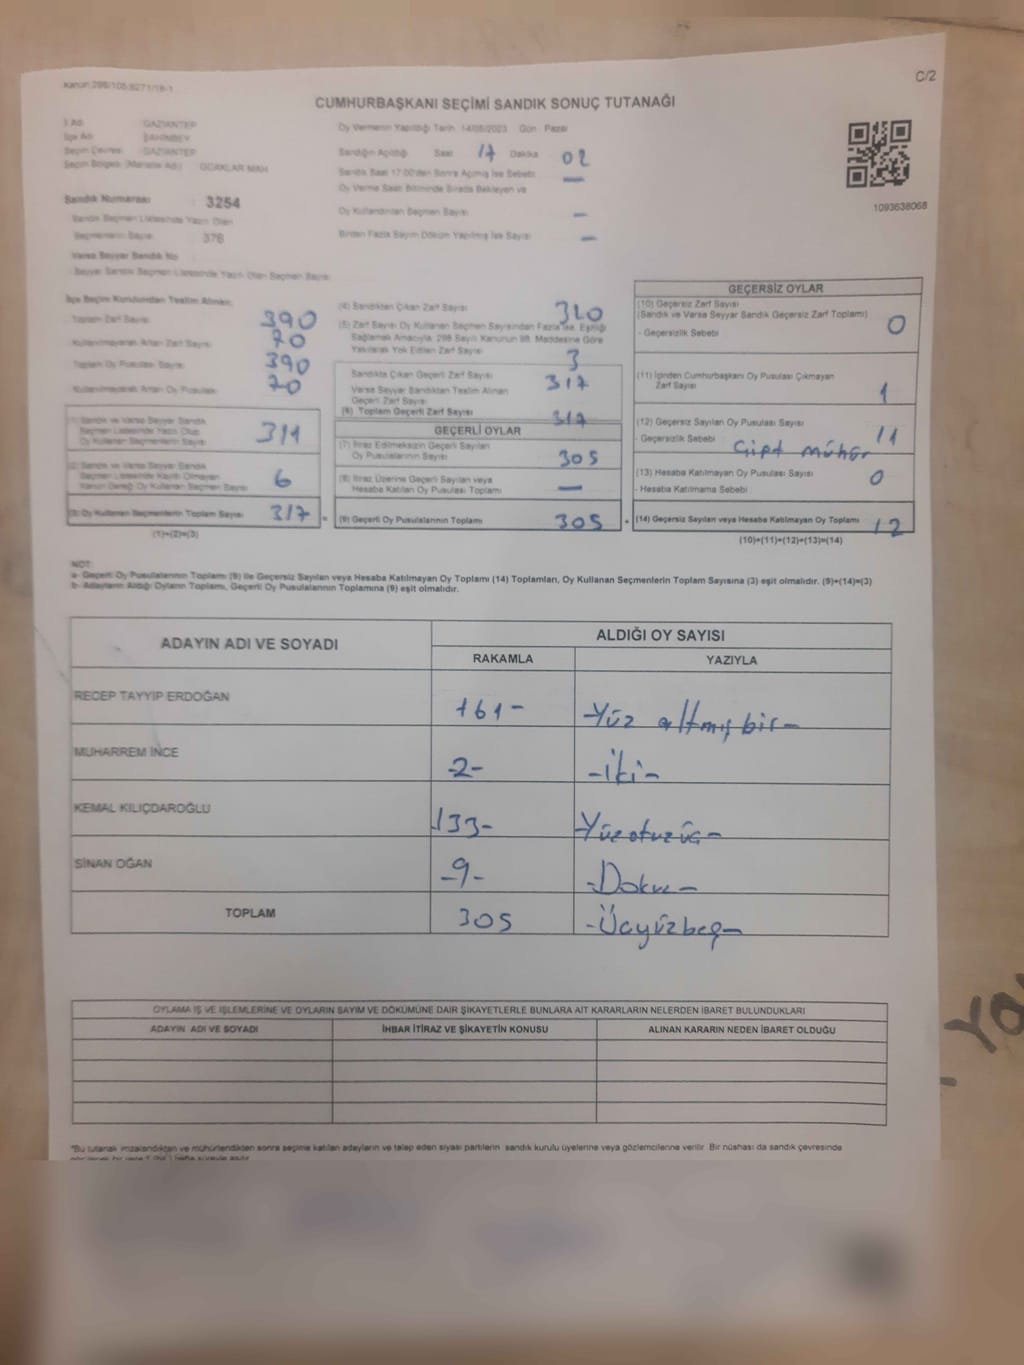 Kanun:298/105;6271/18-1
C/2
CUMHURBAŞKANI SEÇİMİ SANDIK SONUÇ TUTANAĞI
İl Adı : GAZİANTEP
İlçe Adı : ŞAHİNBEY
Seçim Çevresi : GAZİANTEP
Seçim Bölgesi (Mahalle Adı) : OCAKLAR MAH
Sandık Numarası : 3254
Sandık Seçmen Listesinde Yazılı Olan
Seçmenlerin Sayısı : 376
Varsa Seyyar Sandık No
Seyyar Sandık Seçmen Listesinde Yazılı Olan Seçmen Sayısı
Oy Vermenin Yapıldığı Tarih : 14/05/2023 Gün : Pazar
Sandığın Açıldığı Saat 17 Dakika 02
Sandık Saat 17:00'den Sonra Açılmış İse Sebebi -
Oy Verme Saati Bitiminde Sırada Bekleyen ve
Oy Kullandırılan Seçmen Sayısı -
Birden Fazla Sayım Döküm Yapılmış İse Sayısı -
1093638068
İlçe Seçim Kurulundan Teslim Alınan;
Toplam Zarf Sayısı 390
Kullanılmayarak Artan Zarf Sayısı 70
Toplam Oy Pusulası Sayısı 390
Kullanılmayarak Artan Oy Pusulası 70
(1) Sandık ve Varsa Seyyar Sandık
Seçmen Listesinde Yazılı Olup
Oy Kullanan Seçmenlerin Sayısı 311
(2) Sandık ve Varsa Seyyar Sandık
Seçmen Listesinde Kayıtlı Olmayan
Kanun Gereği Oy Kullanan Seçmen Sayısı 6
(3) Oy Kullanan Seçmenlerin Toplam Sayısı 317 =
(1)+(2)=(3)
(4) Sandıktan Çıkan Zarf Sayısı 320
(5) Zarf Sayısı Oy Kullanan Seçmen Sayısından Fazla İse, Eşitliği
Sağlamak Amacıyla, 298 Sayılı Kanunun 98. Maddesine Göre
Yakılarak Yok Edilen Zarf Sayısı 3
Sandıkta Çıkan Geçerli Zarf Sayısı 317
Varsa Seyyar Sandıktan Teslim Alınan
Geçerli Zarf Sayısı
(6) Toplam Geçerli Zarf Sayısı 317
GEÇERLİ OYLAR
(7) İtiraz Edilmeksizin Geçerli Sayılan
Oy Pusulalarının Sayısı 305
(8) İtiraz Üzerine Geçerli Sayılan veya
Hesaba Katılan Oy Pusulası Toplamı -
(9) Geçerli Oy Pusulalarının Toplamı 305 +
GEÇERSİZ OYLAR
(10) Geçersiz Zarf Sayısı
(Sandık ve Varsa Seyyar Sandık Geçersiz Zarf Toplamı) 0
- Geçersizlik Sebebi :
(11) İçinden Cumhurbaşkanı Oy Pusulası Çıkmayan
Zarf Sayısı 1
(12) Geçersiz Sayılan Oy Pusulası Sayısı 11
- Geçersizlik Sebebi : Çift mühür
(13) Hesaba Katılmayan Oy Pusulası Sayısı 0
- Hesaba Katılmama Sebebi :
(14) Geçersiz Sayılan veya Hesaba Katılmayan Oy Toplamı 12
(10)+(11)+(12)+(13)=(14)
NOT:
a- Geçerli Oy Pusulalarının Toplamı (9) ile Geçersiz Sayılan veya Hesaba Katılmayan Oy Toplamı (14) Toplamları, Oy Kullanan Seçmenlerin Toplam Sayısına (3) eşit olmalıdır. (9)+(14)=(3)
b- Adayların Aldığı Oyların Toplamı, Geçerli Oy Pusulalarının Toplamına (9) eşit olmalıdır.
ADAYIN ADI VE SOYADI
ALDIĞI OY SAYISI
RAKAMLA YAZIYLA
RECEP TAYYİP ERDOĞAN 161- -Yüz altmış bir-
MUHARREM İNCE -2- -iki-
KEMAL KILIÇDAROĞLU 133- Yüzotuzüç-
SİNAN OĞAN -9- -Dokuz-
TOPLAM 305 -Üçyüzbeş-
OYLAMA İŞ VE İŞLEMLERİNE VE OYLARIN SAYIM VE DÖKÜMÜNE DAİR ŞİKAYETLERLE BUNLARA AİT KARARLARIN NELERDEN İBARET BULUNDUKLARI
ADAYIN ADI VE SOYADI İHBAR İTİRAZ VE ŞİKAYETİN KONUSU ALINAN KARARIN NEDEN İBARET OLDUĞU
*Bu tutanak imzalandıktan ve mühürlendikten sonra seçime katılan adayların ve talep eden siyasi partilerin sandık kurulu üyelerine veya gözlemcilerine verilir. Bir nüshası da sandık çevresinde